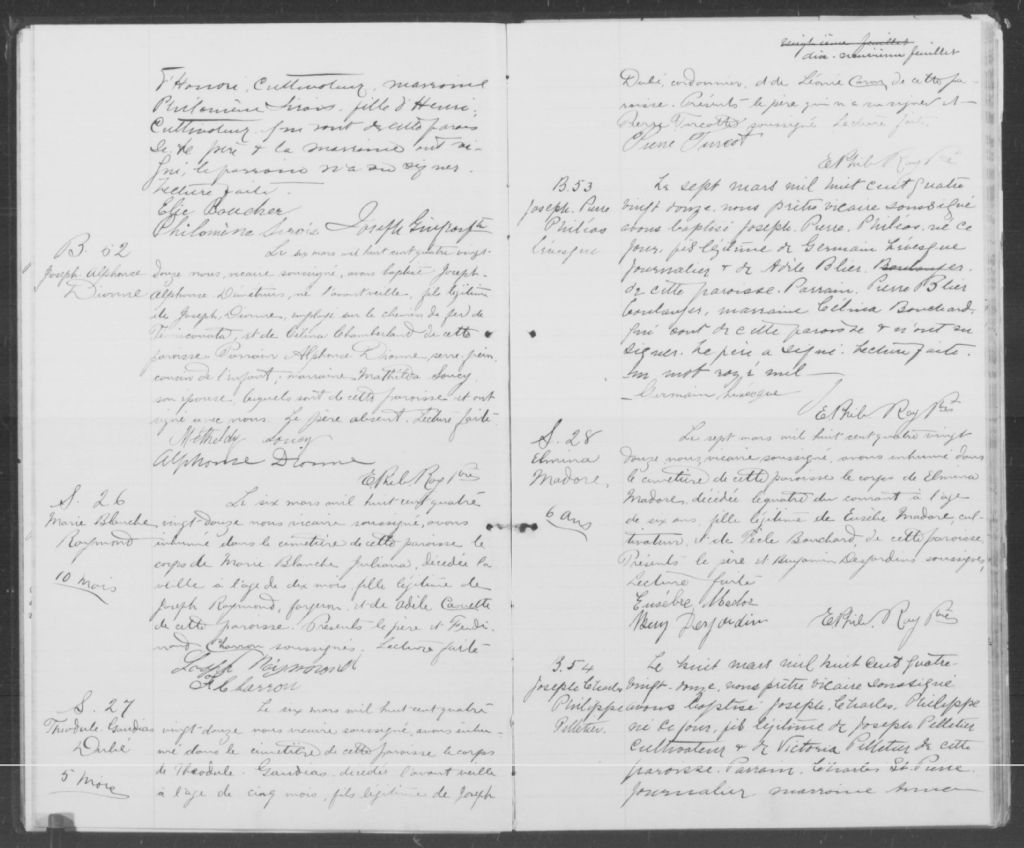 d'Honoré, Cultivateur, marraine
Philomène Sirois, fille d'Henri,
Cultivateur, qui sont de cette parois
se. Le père & la marraine ont si-
gné, le parrain n'a su signer.
Lecture faite.
Elie Boucher
Philomène Sirois Joseph
B. 52
Joseph Alphonse
Dionne
Le six mars mil huit cent quatre vingt-
douze nous, vicaire soussigné, avons baptisé Joseph-
Alphonse né l'avant veille, fils légitime
de Joseph Dionne, employé sur le chemin de fer de
Témiscouata, et de Célina Chamberland de cette
paroisse Parrain Alphonse Dionne, serre-frein,
cousin de l'enfant, marraine Mathilda Soucy,
son épouse, lesquels sont de cette paroisse et ont
signé avec nous. Le père absent. Lecture faite
Mathilda Soucy
Alphonse Dionne
E Phil. Roy Ptre
S. 26
Marie Blanche
Raymond
10 mois
Le six mars mil huit cent quatre
vingt-douze nous vicaire soussigné, avons
inhumé dans le cimetière de cette paroisse le
corps de Marie Blanche Juliana, décédée la
veille à l'âge de dix mois, fille légitime de
Joseph Raymond, forgeron, et de Adile Carrette
de cette paroisse. Présents le père et Ferdi-
nand Charron soussignés. Lecture faite
Joseph Raymond
F. Charron
S. 27
Théodule Gaudias
Dubé
5 Mois
Le six mars mil huit cent quatre
vingt-douze nous vicaire soussigné, avons inhu-
mé dans le cimetière de cette paroisse le corps
de Théodule Gaudias, décédé l'avant veille
à l'âge de cinq mois, fils légitime de Joseph
vingtième feuillet
dix-neuvième feuillet
Dubé, cordonnier, et de Léonie Caron, de cette pa-
roisse. Présents le père qui n'a su signer et
Pierre Turcotte soussigné Lecture faite
Pierre Turcot
E Phil. Roy Ptre
B. 53
Joseph. Pierre
Philéas
Lévesque
Le sept mars mil huit cent quatre
vingt-douze, nous prêtre vicaire soussigné
avons baptisé Joseph. Pierre. Philéas, né ce
jour, fils légitime de Germain Lévesque
journalier & de Adile Blier, Boulanger.
de cette paroisse. Parrain, Pierre Blier
boulanger, marraine Célina Bouchard,
qui sont de cette paroisse & n'ont su
signer. Le père a signé. Lecture faite.
Un mot rayé nul
Germain Lévesque
E Phil. Roy Ptre
S. 28
Elmina
Madore,
6 ans
Le sept mars mil huit cent quatre vingt
douze nous, vicaire soussigné, avons inhumé dans
le cimetière de cette paroisse le corps de Elmina
Madore, décédée le quatre du courant à l'âge
de six ans, fille légitime de Eusèbe Madore, cul-
tivateur, et de Thècle Bouchard de cette paroisse.
Présents le père et Benjamin Desjardins soussignés,
Lecture faite
Eusèbe Mador
Benj Desjardin E Phil. Roy Ptre
B. 54
Joseph Charles
Philippe
Pelletier
Le huit mars mil huit cent quatre-
vingt-douze, nous prêtre vicaire soussigné
avons baptisé Joseph. Charles. Philippe
né ce jour, fils légitime de Joseph Pelletier
cultivateur & de Victoria Pelletier de cette
paroisse. Parrain, Charles St Pierre
journalier marraine Anna